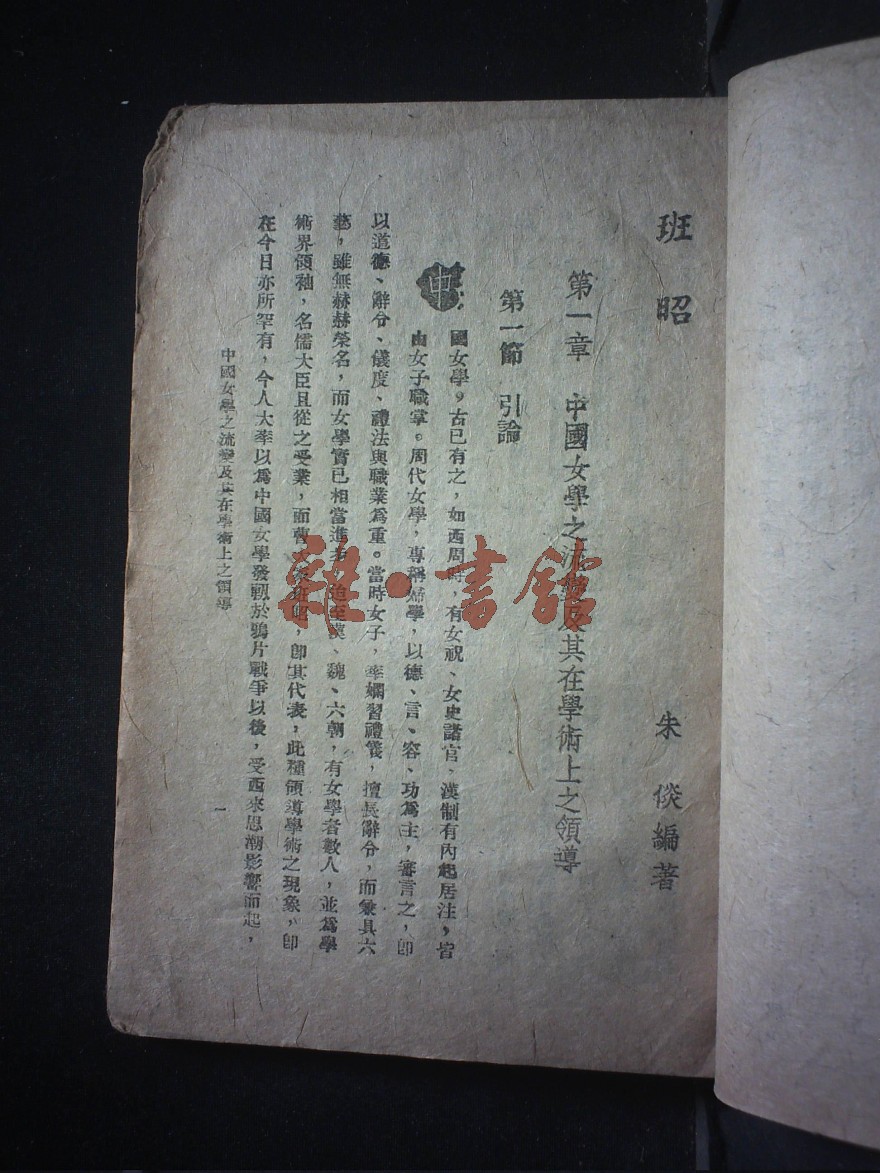 班昭
朱倓編著
第一章 中國女學之流變及其在學術上之領導
第一節 引論
中國女學，古已有之，如西周時，有女祝、女史諸官、漢制有內起居注，皆
由女子職掌。周代女學，專稱婦學，以德、言、容、功為主，審言之，即
以道德、辭令、儀度、禮法與職業為重。當時女子，率嫻習禮儀，擅長辭令，而兼具六
藝，雖無赫赫榮名，而女學實已相當進步，迨至漢、魏、六朝，有女學者數人，並為學
術界領袖，名儒大臣且從之受業，而曹大家班昭，即其代表，此種領導學術之現象，即
在今日亦所罕有，今人大率以為中國女學發軔於鴉片戰爭以後，受西來思潮影響而起，
中國女學之流變及其在學術上之領導
一
雜·書館